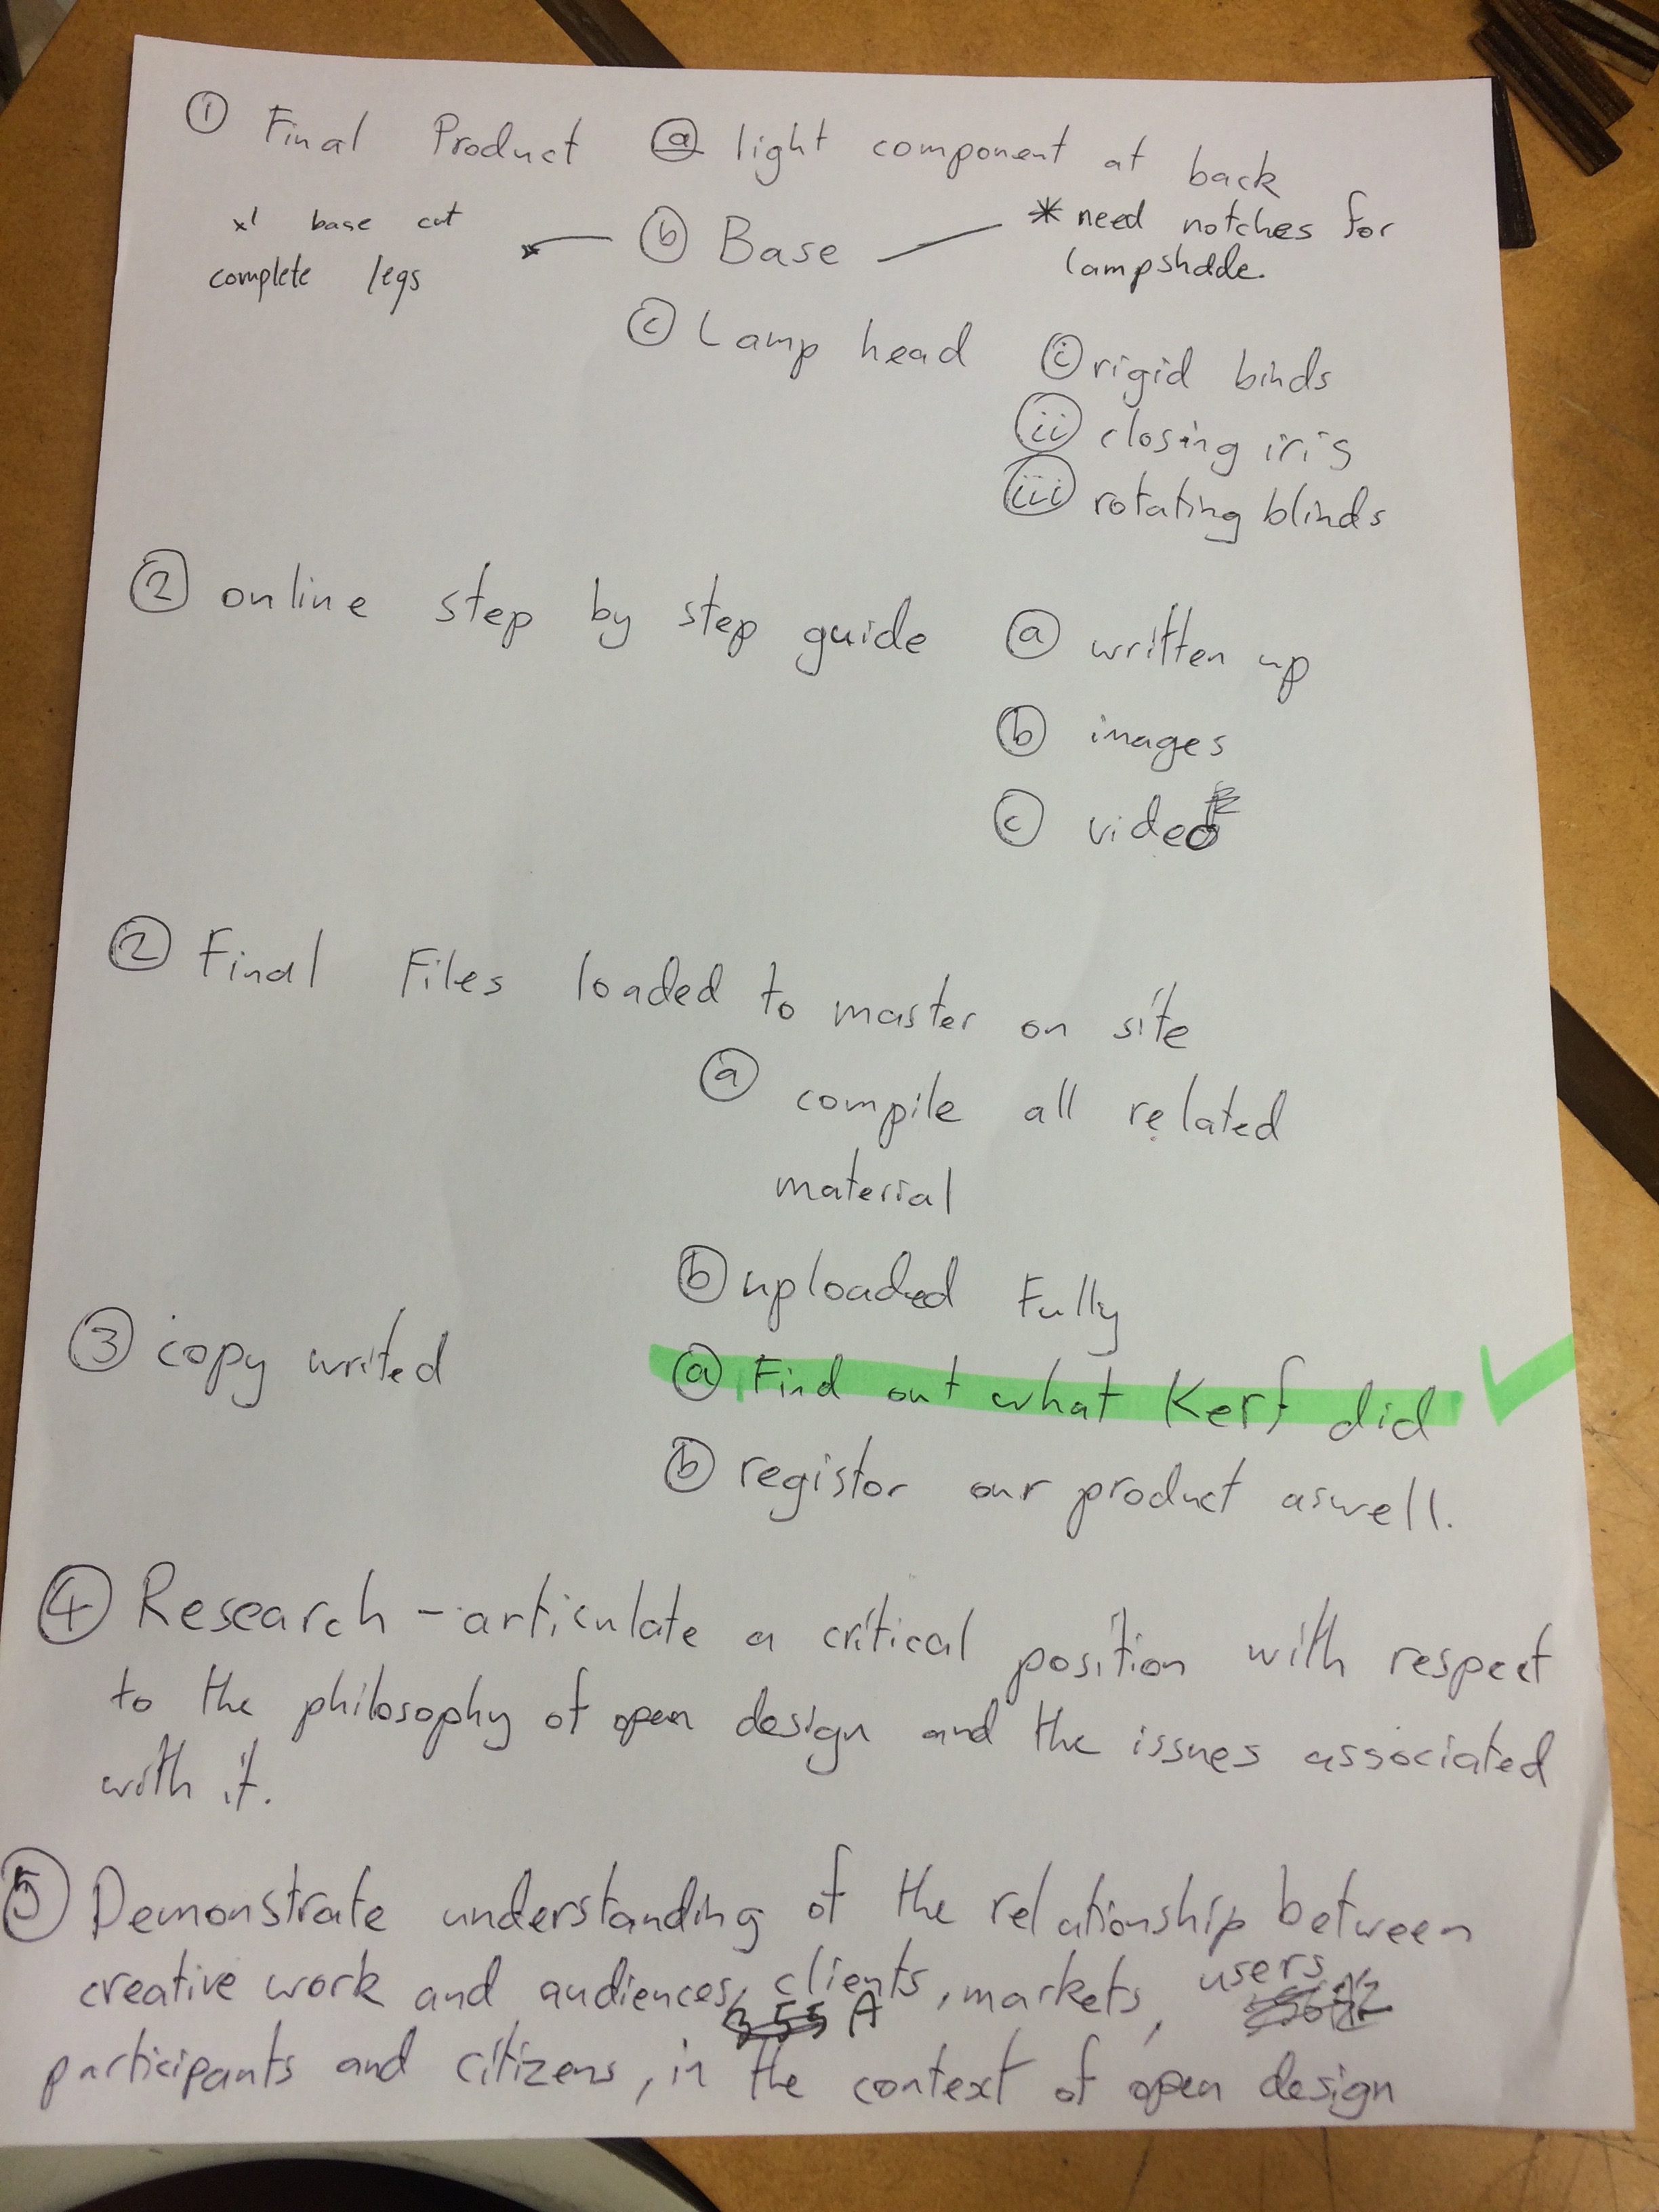 ① Final Product ⓐ light component at back
x1 base cut
complete legs
ⓑ Base
* need notches for
lampshade.
ⓒ Lamp head ⓘ rigid binds
ⅱ closing iris
ⅲ rotating blinds
② online step by step guide ⓐ written up
ⓑ images
ⓒ video
② Final Files loaded to master on site
ⓐ compile all related
material
ⓑ uploaded Fully
③ copy writed ⓐ Find out what Kerf did ✓
ⓑ registor our product aswell.
④ Research - articulate a critical position with respect
to the philosophy of open design and the issues associated
with it.
⑤ Demonstrate understanding of the relationship between
creative work and audiences, clients, markets, users,
participants and citizens, in the context of open design